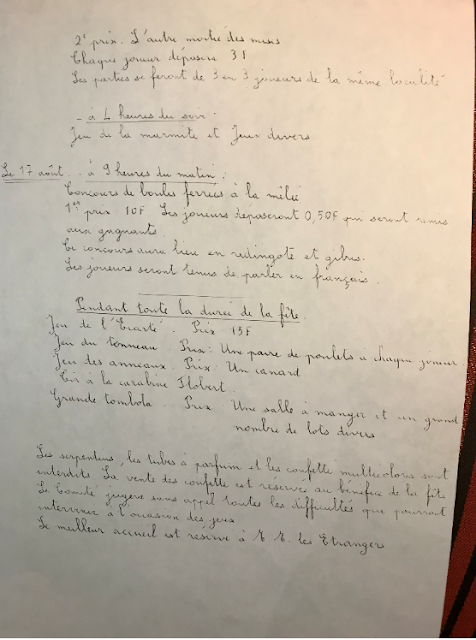 2e prix. L'autre moitié des mises
Chaque joueur déposera 3F
Les parties se feront de 3 en 3 joueurs de la même localité
- à 4 heures du soir.
Jeu de la marmite et Jeux divers
Le 17 août.. à 9 heures du matin.
Concours de boules ferrées à la mêlée
1er prix 10F Les joueurs déposeront 0,50F qui seront remis
aux gagnants.
Ce concours aura lieu en redingote et gibus.
Les joueurs seront tenus de parler en français.
Pendant toute la durée de la fête.
Jeu de l'Ecarté. Prix 15F
Jeu du tonneau. Prix: Un paire de poulets à chaque joueur
Jeu des anneaux. Prix: Un canard
Tir à la carabine Flobert.
Grande tombola. Prix: Une salle à manger et un grand
nombre de lots divers
Les serpentins, les tubes à parfum et les confetti multicolores sont
interdits La vente des confetti est réservé au bénéfice de la fête
Le Comité jugera sans appel toutes les difficultés que pourront
intervenir à l'occasion des jeux
Le meilleur accueil est réservé à M.M. les Etrangers